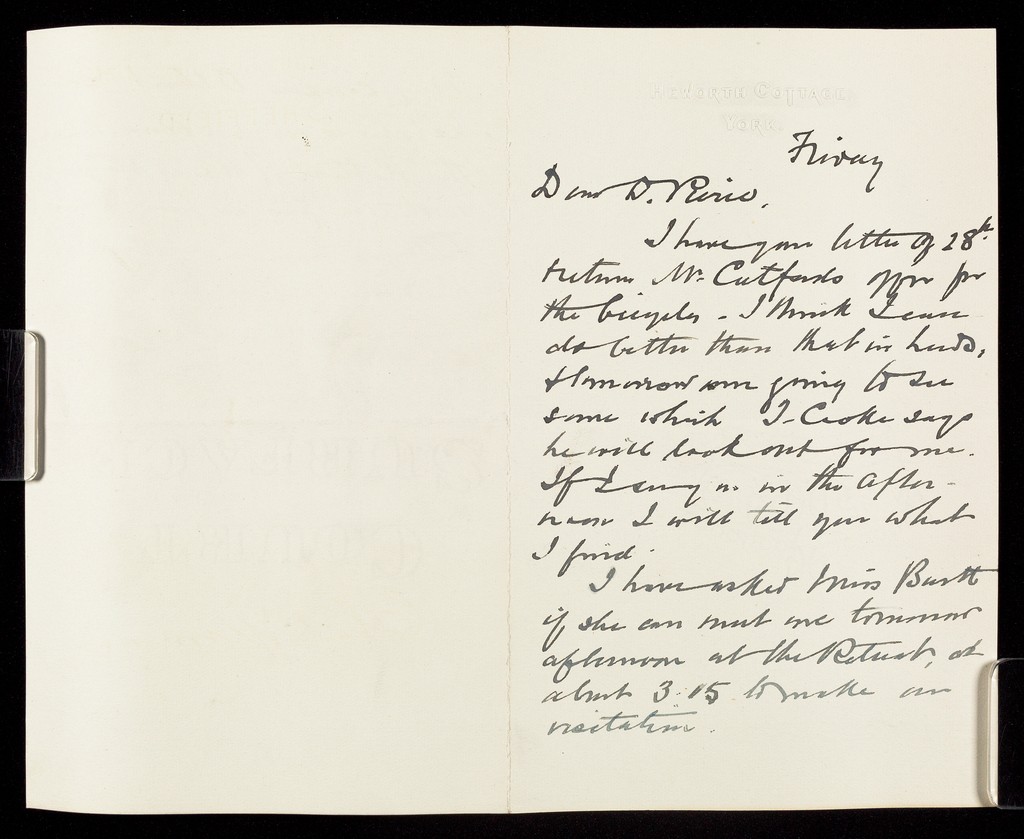 HEWORTH COTTAGE,
YORK.
Friday
Dear D. Pierce,
I have your letter of 28th
& return Mr. Catfords offer for
the bicycles - I think I can
do better than that in Leeds,
& tomorrow am going to see
some which J. Cooke says
he will look out for me.
If I see you in the after-
noon I will tell you what
I find.
I have asked Miss Burtt
if she can meet me tomorrow
afternoon at the Retreat, at
about 3.15 to make an
visitation.